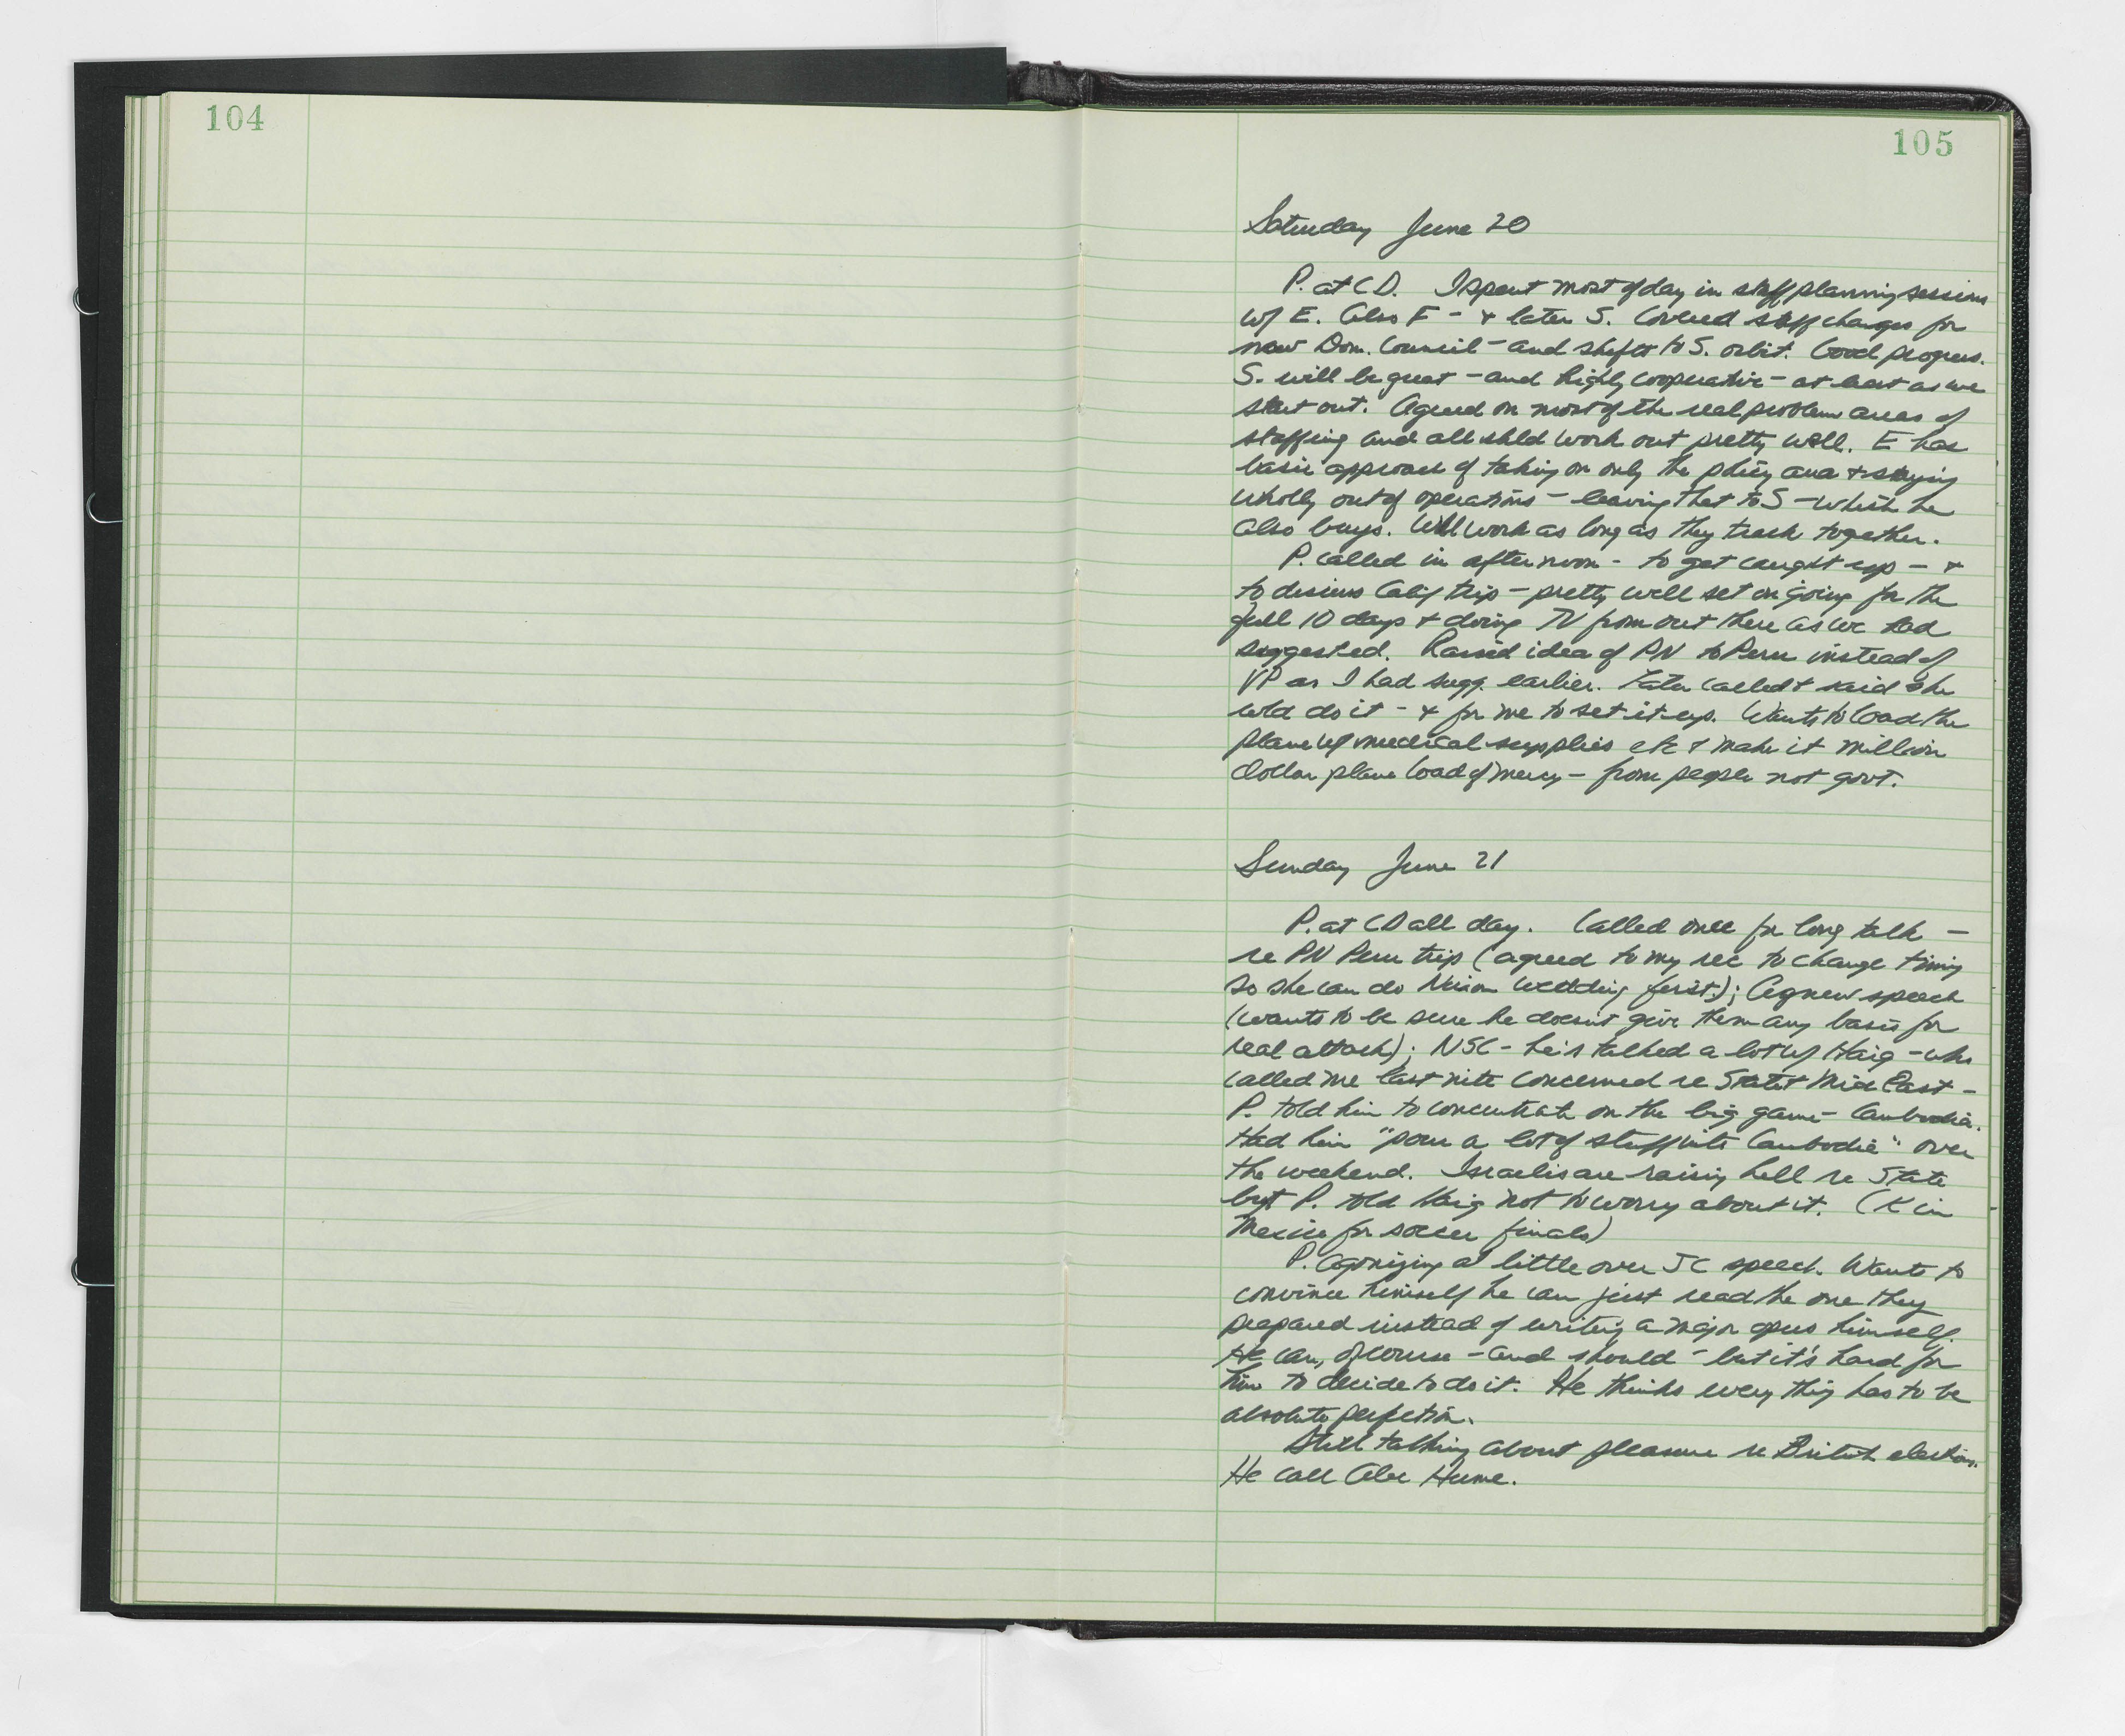 104
105
Saturday June 20
P. at CD. I spent most of day in staff planning sessions
w/ E. Also F - & later S. Covered staff changes for
new Dom. Council - and shifts to S. orbit. Good progress.
S. will be great - and highly cooperative - at least as we
start out. Agreed on most of the real problem areas of
staffing and all shld work out pretty well. E has
basic approach of taking on only the policy area & staying
wholly out of operations - leaving that to S - which he
also buys. Will work as long as they track together.
P. called in afternoon - to get caught up - &
to discuss Calif trip - pretty well set on going for the
full 10 days & doing TV from out there as we had
suggested. Raised idea of PN to Peru instead of
VP as I had sugg. earlier. Later called & said she
wld do it - & for me to set it up. Wants to load the
plane w/ medical supplies etc & make it million
dollar plane load of mercy - from people not govt.
Sunday June 21
P. at CD all day. Called once for long talk -
re PN Peru trip (agreed to my rec to change timing
so she can do Nixon wedding first); Agnew speech
(wants to be sure he doesn't give them any basis for
real attack); NSC - he's talked a lot w/ Haig - who
called me last nite concerned re State & Mid East -
P. told him to concentrate on the big game - Cambodia.
Had him "pour a lot of stuff into Cambodia" over
the weekend. Israelis are raising hell re State
but P. told Haig not to worry about it. (K in
Mexico for soccer finals)
P. agonizing a little over JC speech. Wants to
convince himself he can just read the one they
prepared instead of writing a major opus himself.
He can, of course - and should - but it's hard for
him to decide to do it. He thinks every thing has to be
absolute perfection.
Still talking about pleasure re British elections.
He call Alec Hume.